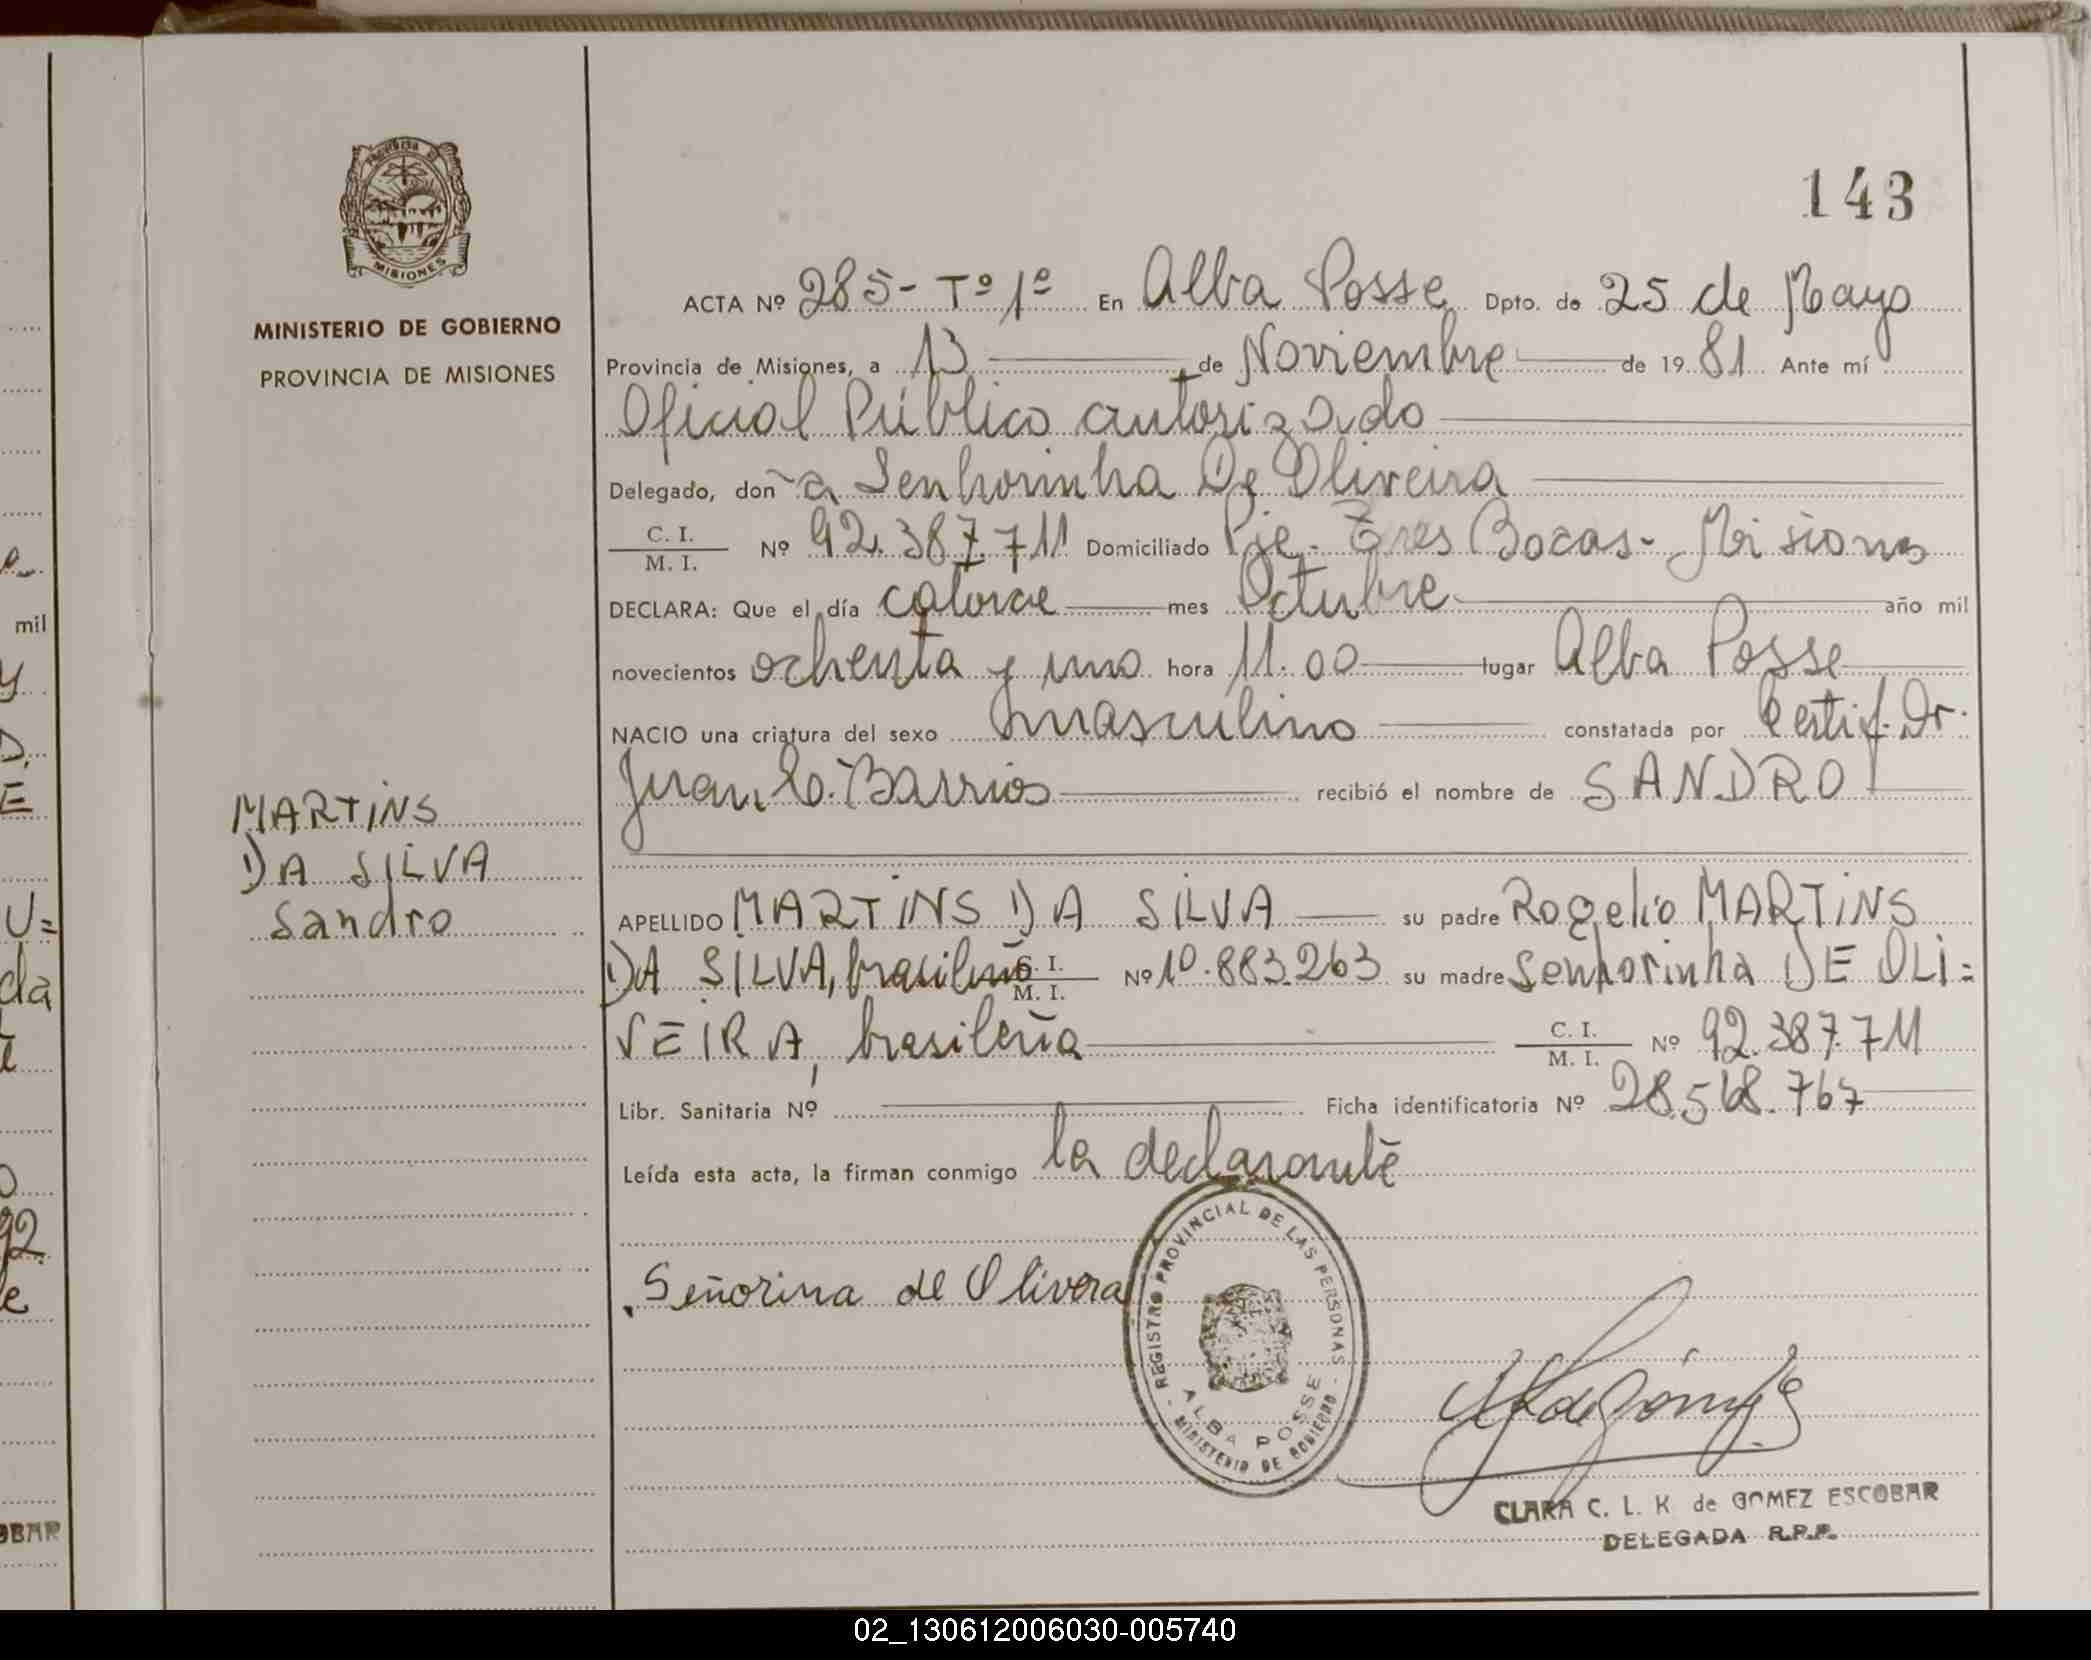 143
MINISTERIO DE GOBIERNO
PROVINCIA DE MISIONES
PROVINCIA DE
MISIONES
ACTA Nº 285- Tº 1º En Alba Posse Dpto. de 25 de Mayo
Provincia de Misiones, a 13 de Noviembre de 19 81 Ante mí
Oficial Público autorizado
Delegado, don a Senhorinha De Oliveira
C. I.
M. I. Nº 92.387.711 Domiciliado Pje. Tres Bocas- Misiones
DECLARA: Que el día catorce mes Octubre año mil
novecientos ochenta y uno hora 11.00 lugar Alba Posse
NACIO una criatura del sexo masculino constatada por Certif. Dr.
Juan C. Barrios recibió el nombre de SANDRO
MARTINS
DA SILVA
Sandro
APELLIDO MARTINS DA SILVA su padre Rogelio MARTINS
DA SILVA, brasileño C. I. M. I. Nº 10.883.263 su madre Senhorinha DE OLI=
VEIRA, brasileña C. I. M. I. Nº 92.387.711
Libr. Sanitaria Nº Ficha identificatoria Nº
Leída esta acta, la firman conmigo la declarante
Señorina de Olivera
REGISTRO PROVINCIAL DE LAS PERSONAS
ALBA POSSE
MINISTERIO DE GOBIERNO
CLARA C. L. K de GOMEZ ESCOBAR
DELEGADA R.P.P.
02_130612006030-005740